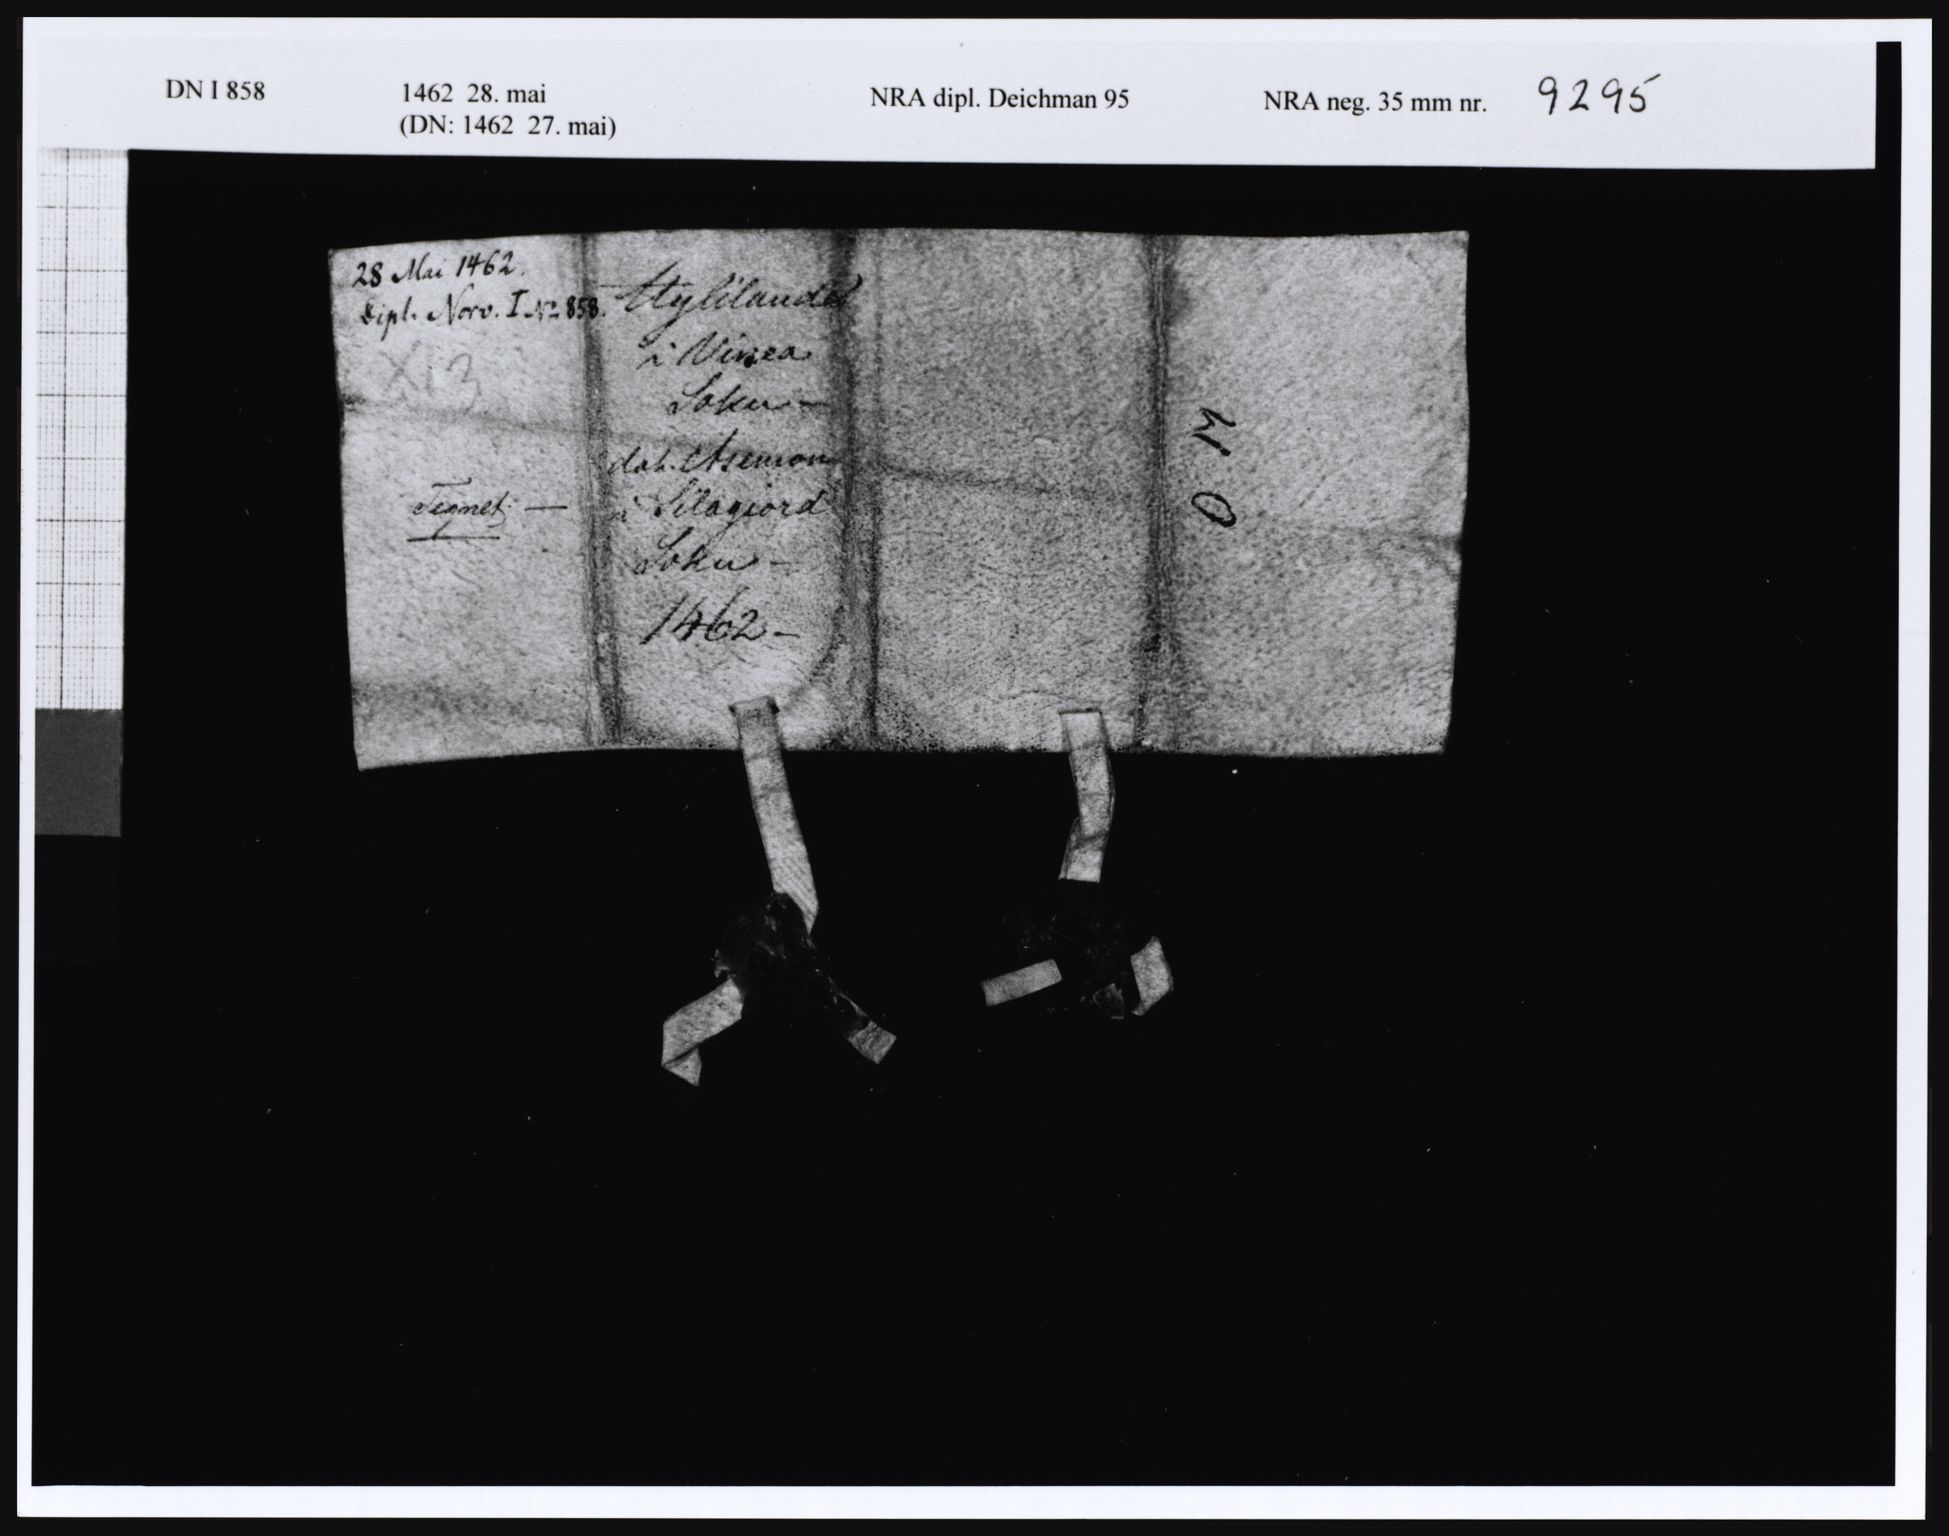 DN I 858
1462 28. mai
(DN: 1462 27. mai)
NRA dipl. Deichman 95
NRA neg. 35 mm nr. 9295
28 Mai 1462.
Dipl. Norv. I. No 858.
X13
Tegnet. —
i Vinea
Soku —
dat.
i Silagiord
Soku —
1462 —